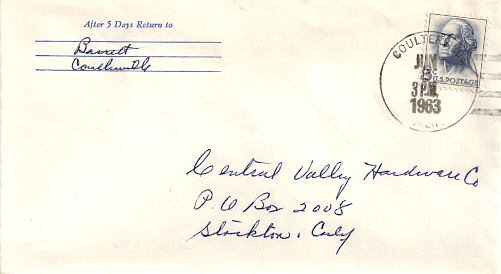 After 5 Days Return to
Barrett
Coulterville
COULTERV
JUN
8
3 PM
1963
U.S. POSTAGE
Central Valley Hardware Co
P.O Box 2008
Stockton, Caly